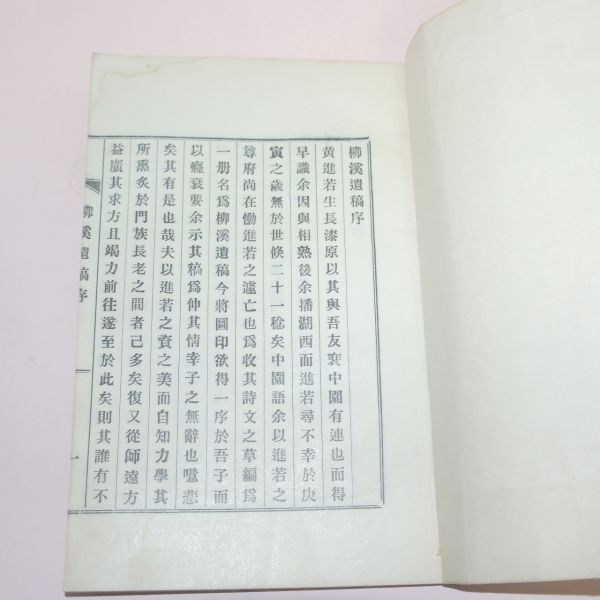 柳溪遺稿序
黃進若生長漆原以其與吾友裵中園有連也而得
早識余因與相熟後余播湖西而進若尋不幸於庚
寅之歲無於世倏二十一稔矣中園語余以進若之
尊府尚在慟進若之遽亡也爲收其詩文之草編爲
一册名爲柳溪遺稿今將圖印欲得一序於吾子而
以癃衰要余示其稿爲伸其情幸子之無辭也噫悲
矣其有是也哉夫以進若之資之美而自知力學其
所熏炙於門族長老之間者已多矣復又從師遠方
益廣其求方且竭力前往遂至於此矣則其誰有不
柳溪遺稿序
一